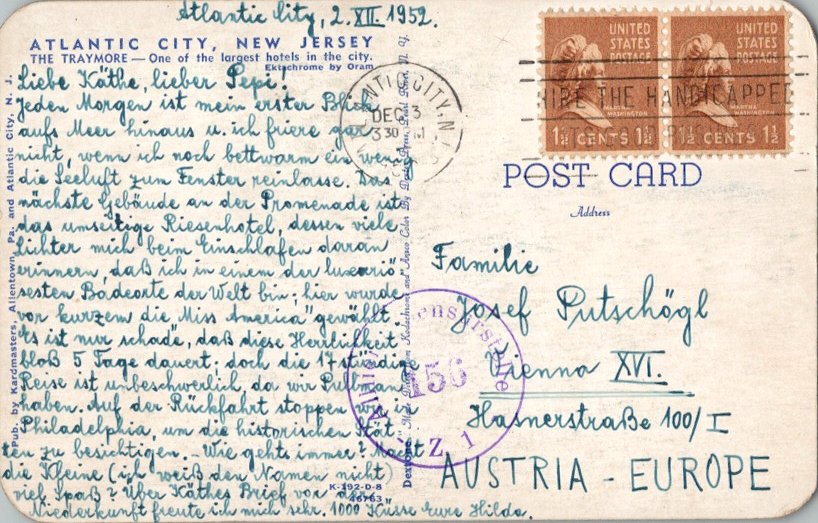 Atlantic City, 2. XII. 1952.
ATLANTIC CITY, NEW JERSEY
THE TRAYMORE — One of the largest hotels in the city.
Ektachrome by Oram
Liebe Käthe, lieber Pepi!
Jeden Morgen ist mein erster Blick
aufs Meer hinaus u. ich friere gar
nicht, wenn ich noch bettwarm ein wenig
die Seeluft zum Fenster reinlasse. Das
nächste Gebäude an der Promenade ist
das umseitige Riesenhotel, dessen viele
Lichter mich beim Einschlafen daran
erinnern, daß ich in einem der luxuriö
sesten Badeorte der Welt bin; hier wurde
vor kurzem die „Miss America" gewählt.
Es ist nur schade, daß diese Herrlichkeit
bloß 5 Tage dauert; doch die 17 stündige
Reise ist unbeschwerlich da wir Pullman
haben. Auf der Rückfahrt stoppen wir in
Philadelphia, um die historischen Stät-
ten zu besichtigen. – Wie gehts immer? Macht
die Kleine (ich weiß den Namen nicht)
viel Spaß? Über Käthes Brief vor der
Niederkunft freute ich mich sehr. 1000 Küsse Eure Hilde.
Pub. by Kardmasters, Allentown, Pa. and Atlantic City, N. J.
K-192-D-8
46763
ATLANTIC CITY, N.J.
DEC 3
3 30 PM
HIRE THE HANDICAPPED
UNITED
STATES
POSTAGE
MARTHA
WASHINGTON
1½ CENTS 1½
UNITED
STATES
POSTAGE
MARTHA
WASHINGTON
1½ CENTS 1½
POST CARD
Address
Familie
Josef Putschögl
Vienna XVI.
Hasnerstraße 100/I
AUSTRIA - EUROPE
Zensurstelle
156
Z. 1